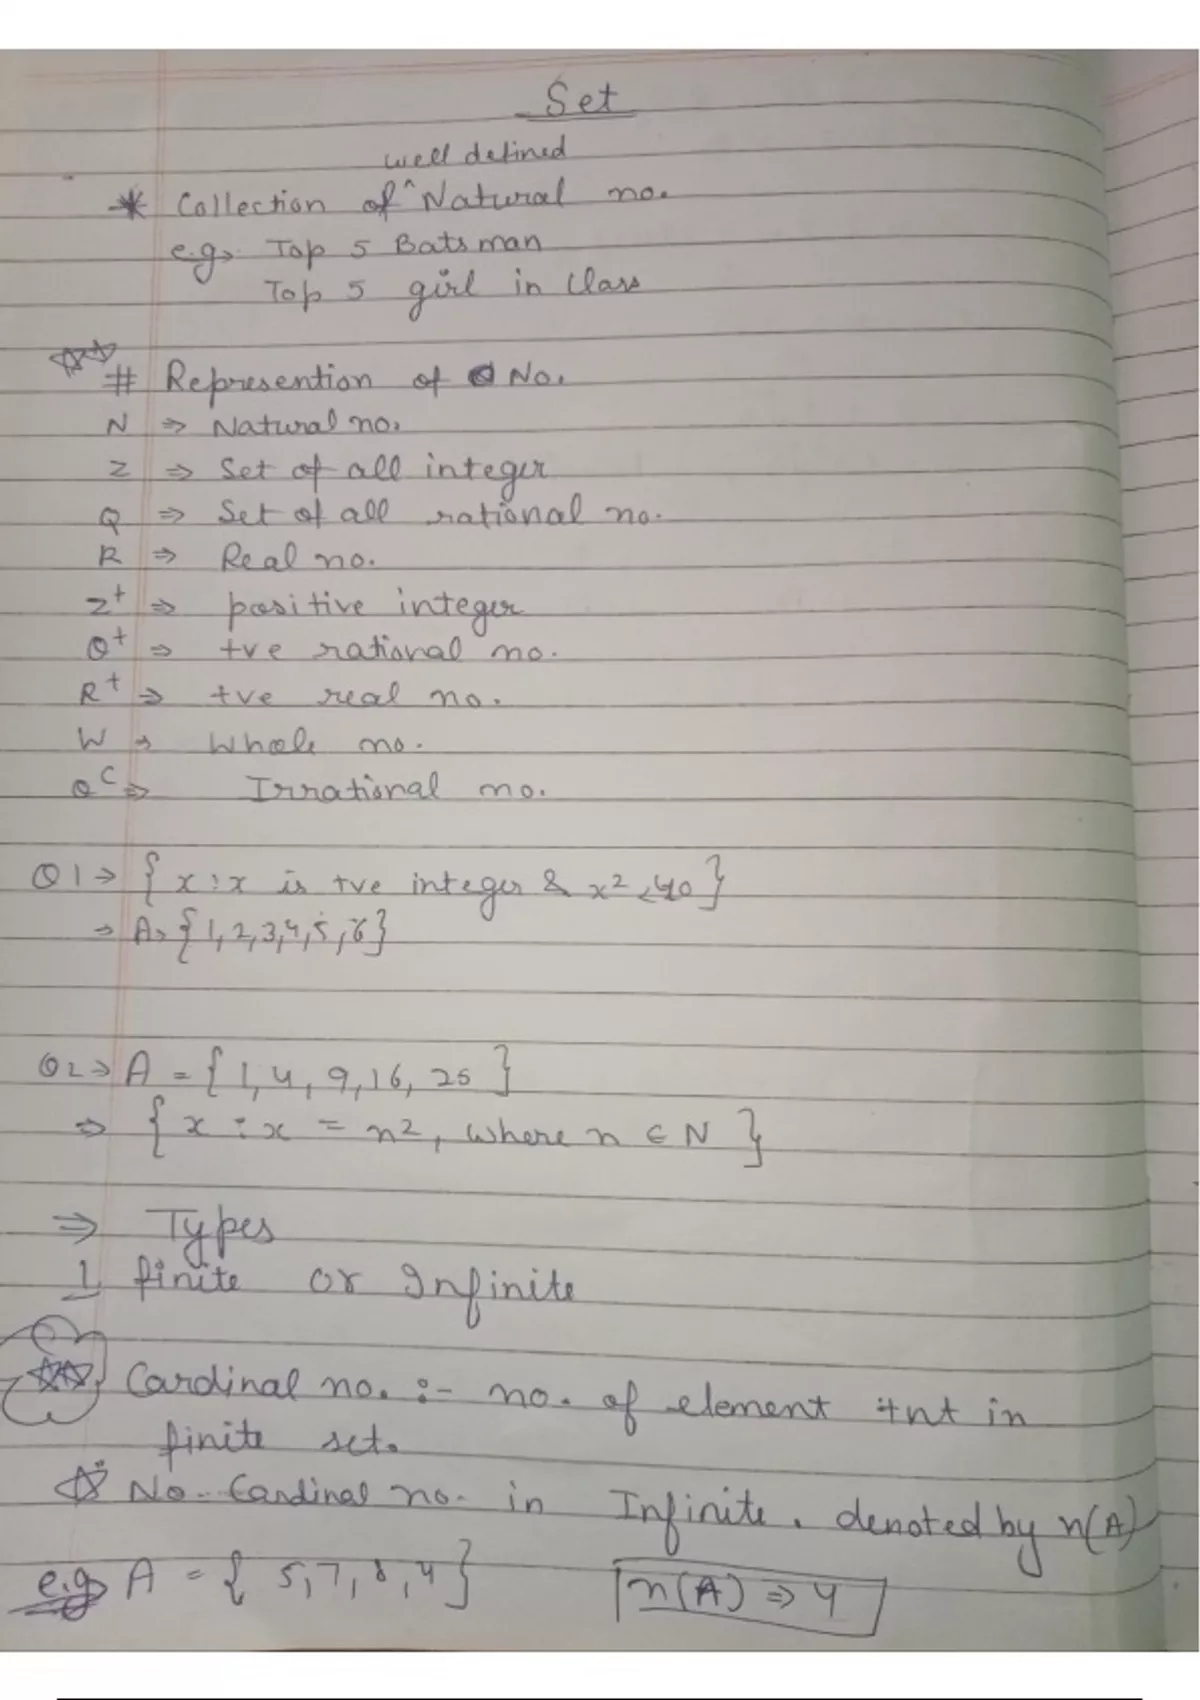 Set
well defined
* Collection of ^ Natural no.
e.g. Top 5 Batsman
Top 5 girl in Class
# Represention of No.
N ⇒ Natural no.
Z ⇒ Set of all integer
Q ⇒ Set of all rational no.
R ⇒ Real no.
Z⁺ ⇒ positive integer
Q⁺ ⇒ +ve rational no.
R⁺ ⇒ +ve real no.
W ⇒ Whole no.
Q^C ⇒ Irrational no.
Q1 → { x : x is +ve integer & x² < 40 }
→ A = { 1, 2, 3, 4, 5, 6 }
Q2 ⇒ A = { 1, 4, 9, 16, 25 }
⇒ { x : x = n², where n ∈ N }
⇒ Types
1 finite or Infinite
Cardinal no. :- no. of element in
finite set.
No. Cardinal no. in Infinite. denoted by n(A)
e.g. A = { 5, 7, 8, 4 } n(A) ⇒ 4